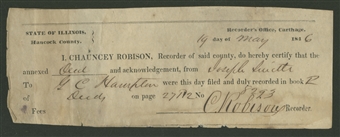 STATE OF ILLINOIS,
Hancock County.
Recorder's Office, Carthage,
19 day of May 1846
I, CHAUNCEY ROBISON, Recorder of said county, do hereby certify that the
annexed Deed and acknowledgement, from Joseph Smith
To G C Hampton were this day filed and duly recorded in book P
Deeds on page 27182 No 8323
Fees C Robison Recorder.